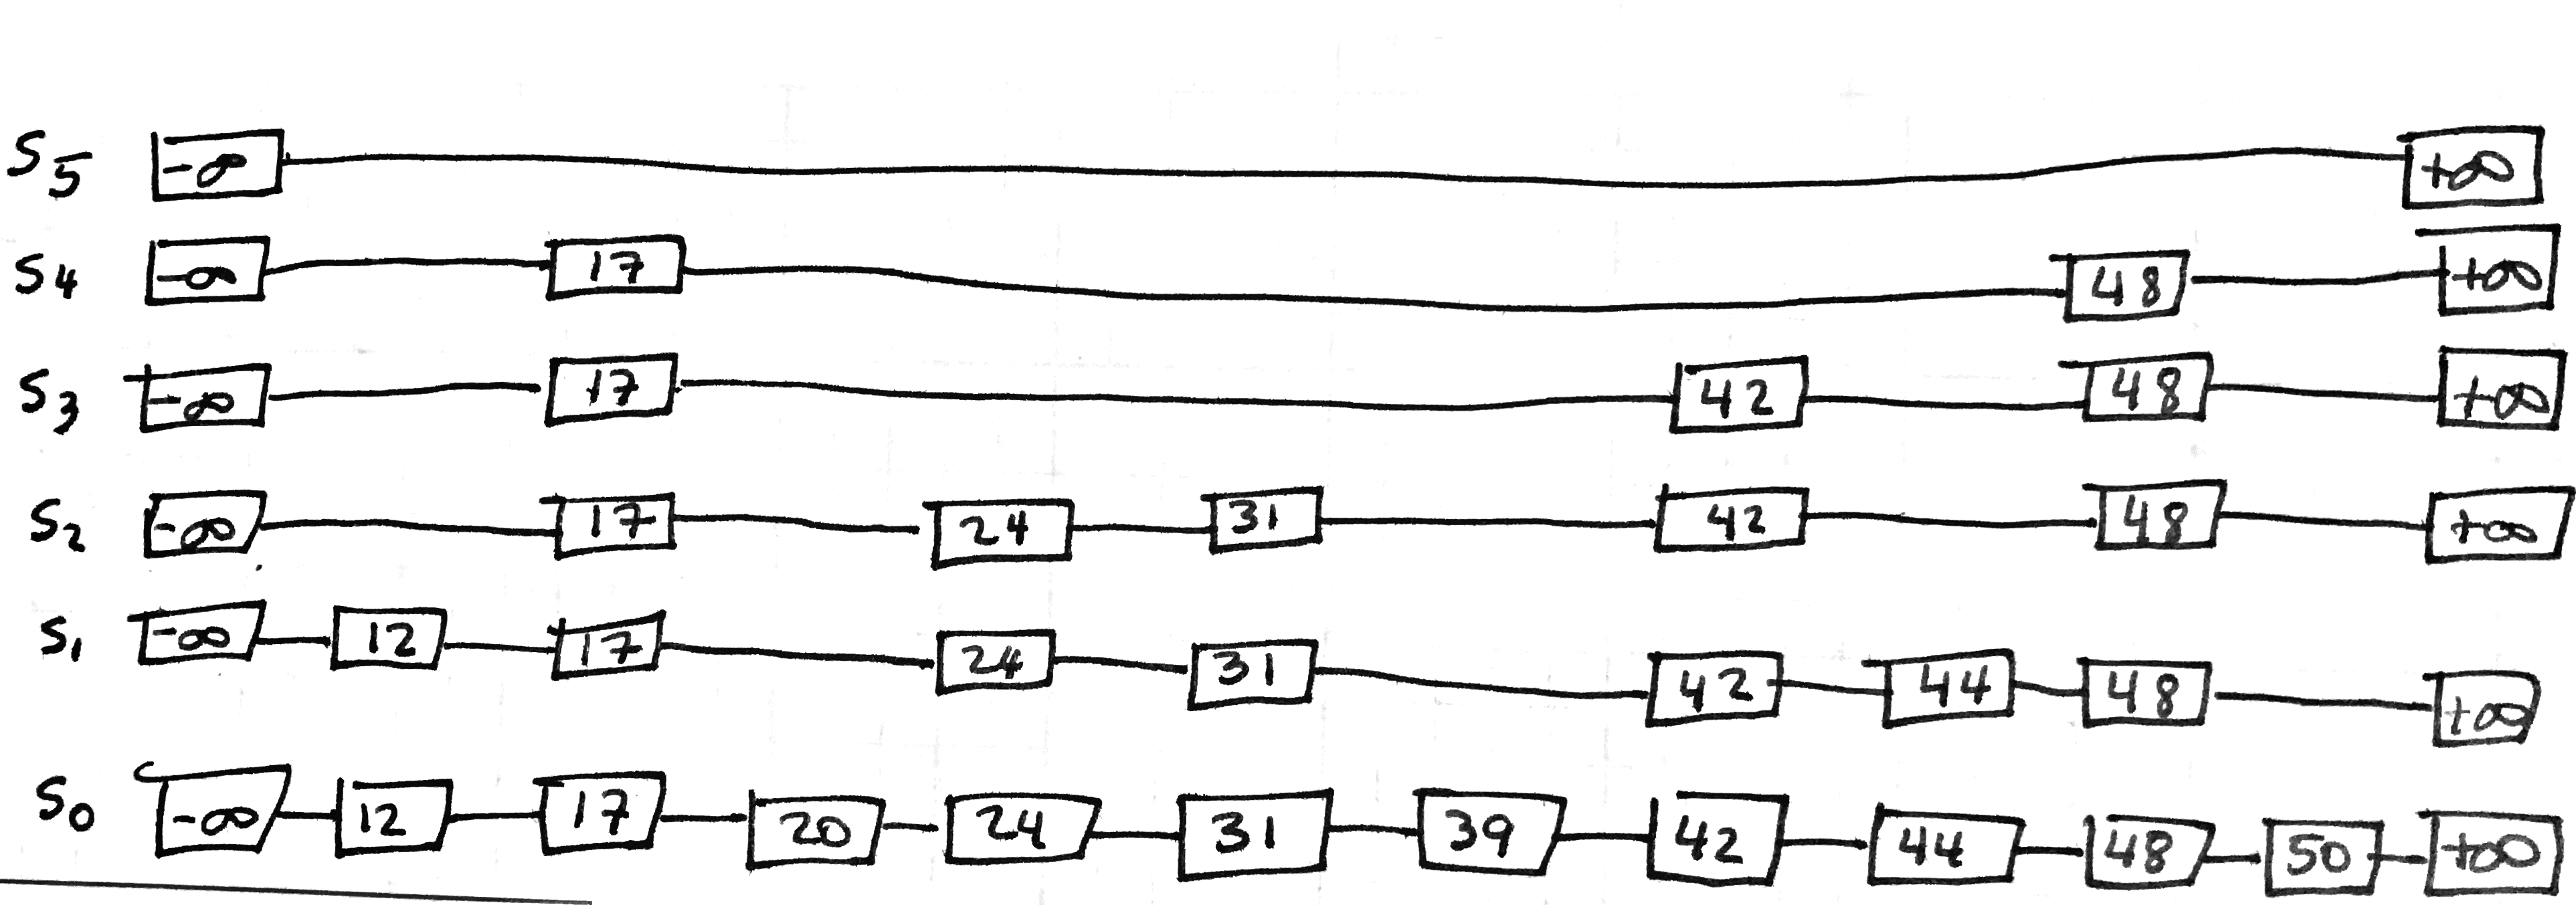 S5 -∞ +∞
S4 -∞ 17 48 +∞
S3 -∞ 17 42 48 +∞
S2 -∞ 17 24 31 42 48 +∞
S1 -∞ 12 17 24 31 42 44 48 +∞
S0 -∞ 12 17 20 24 31 39 42 44 48 50 +∞